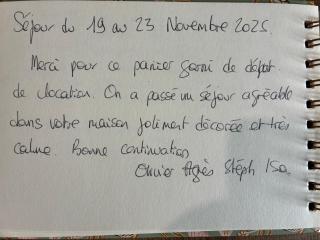 Séjour du 19 au 23 Novembre 2025.
Merci pour ce panier garni de départ
de location. On a passé un séjour agréable
dans votre maison joliment décorée et très
calme. Bonne continuation
Olivier Agnès Stéph Isa.